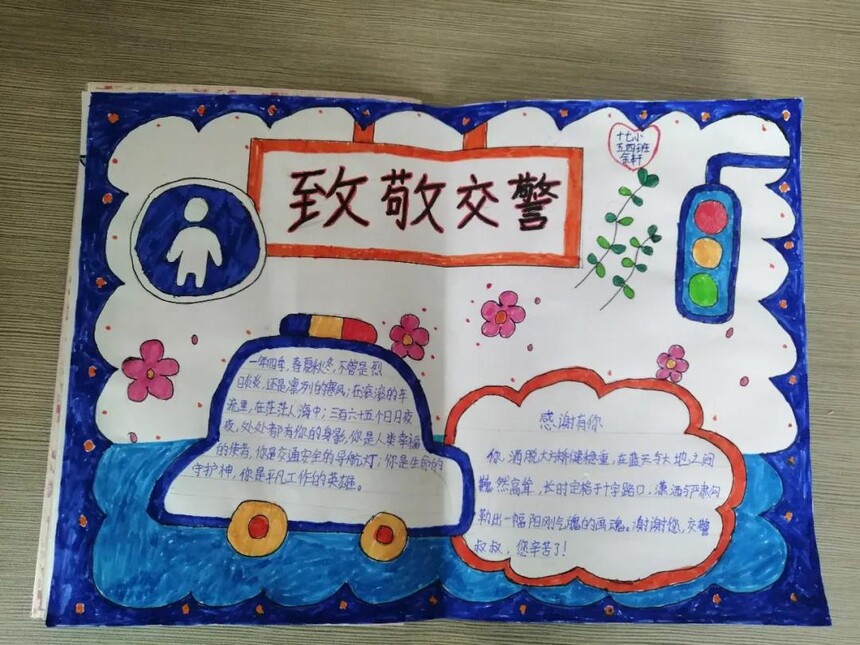 致敬交警
十七小
五四班
金轩
一年四季，春夏秋冬，不管是烈
日炎炎，还是凛冽的寒风；在滚滚的车
流里，在茫茫人海中；三百六十五个日日夜
夜，处处都有你的身影，你是人类幸福
的使者，你是交通安全的导航灯；你是生命的
守护神，你是平凡工作的英雄。
感谢有你
你，洒脱大矫健稳重，在蓝天与大地之间
巍然高耸，长时定格于十字路口，潇洒与严肃勾
勒出一幅阳刚吃魂的画魂。谢谢您，交警
叔叔，您辛苦了！